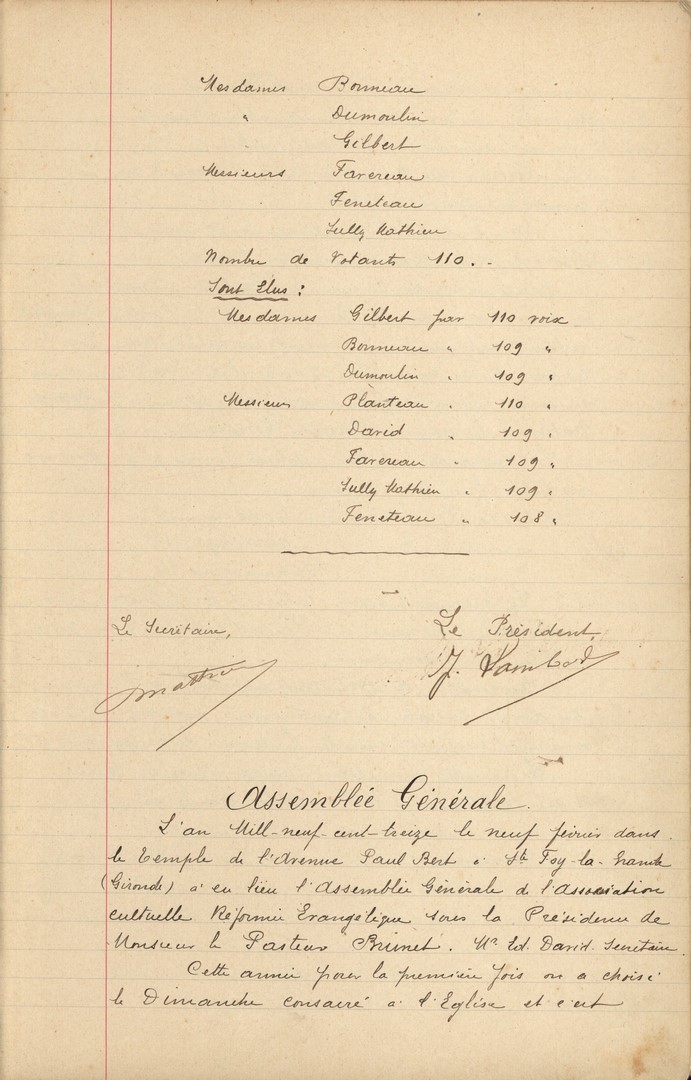 Mesdames Bonneau
" Dumoulin
" Gilbert
Messieurs Favereau
Feneteau
Sully Mathieu
Nombre de Votants 110. -
Sont Élus :
Mesdames Gilbert par 110 voix
Bonneau " 109 "
Dumoulin " 109 "
Messieurs Planteau " 110 "
David " 109 "
Favereau " 109 "
Sully Mathieu " 109 "
Feneteau " 108 "
Le Secrétaire, Le Président,
Mathieu J.
Assemblée Générale.
L'an Mill-neuf-cent-treize le neuf février dans
le Temple de l'Avenue Paul Bert à Ste Foy-la-Grande
(Gironde) a eu lieu l'Assemblée Générale de l'Association
cultuelle Réformée Evangélique sous la Présidence de
Monsieur le Pasteur Brunet. Mr Ed. David Secrétaire.
Cette année pour la première fois on a choisi
le Dimanche consacré à l'Eglise et c'est